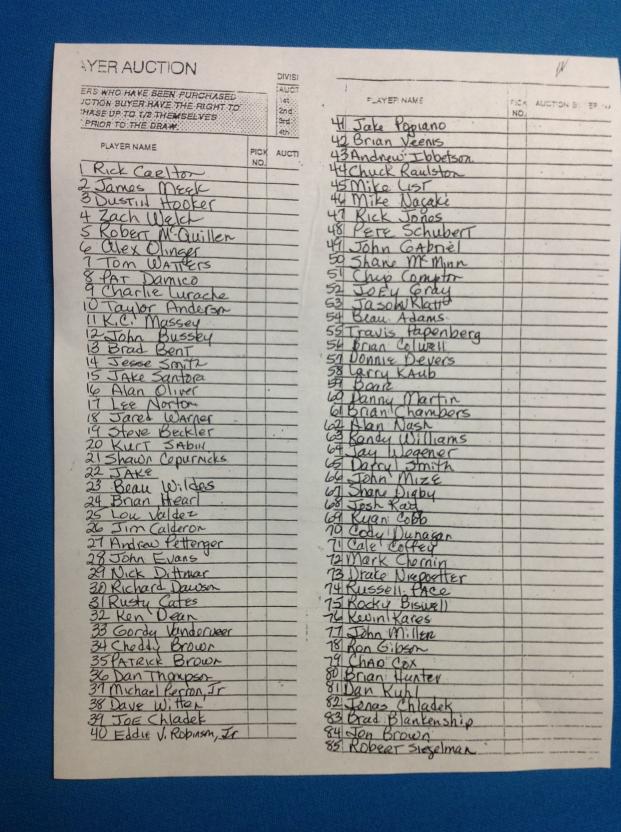 AYER AUCTION
DIVISI
ERS WHO HAVE BEEN PURCHASED
UCTION BUYER HAVE THE RIGHT TO
HASE UP TO 1/2 THEMSELVES
PRIOR TO THE DRAW.
AUCT
1st
2nd
3rd
4th
PLAYER NAME PICK NO. AUCTI
1 Rick Carlton
2 James Meek
3 Dustin Hooker
4 Zach Welch
5 Robert McQuillen
6 Alex Olinger
7 Tom Watters
8 Pat Damico
9 Charlie Lurache
10 Taylor Anderson
11 K.C. Massey
12 John Bussey
13 Brad Bent
14 Jesse Smith
15 Jake Santora
16 Alan Oliver
17 Lee Norton
18 Jared Warner
19 Steve Beckler
20 Kurt Sabin
21 Shawn Copurnicks
22 Jake
23 Beau Wildes
24 Brian Hearl
25 Lou Valdez
26 Jim Calderon
27 Andrew Pettenger
28 John Evans
29 Nick Dittmar
30 Richard Dawson
31 Rusty Cates
32 Ken Dean
33 Gordy Vanderveer
34 Cheddy Brown
35 Patrick Brown
36 Dan Thompson
37 Michael Perron, Jr
38 Dave Witten
39 Joe Chladek
40 Eddie V. Robinson, Jr
PLAYER NAME PICK NO. AUCTION
41 Jake Popiano
42 Brian Veenis
43 Andrew Ibbetson
44 Chuck Raulston
45 Mike List
46 Mike Nagake
47 Rick Jones
48 Pete Schubert
49 John Gabriel
50 Shane McMinn
51 Chip Compton
52 Joey Gray
53 Jason Klatt
54 Beau Adams
55 Travis Hapenberg
56 Brian Colwell
57 Donnie Devers
58 Larry Kaub
59
60 Danny Martin
61 Brian Chambers
62 Alan Nash
63 Randy Williams
64 Jay Wegener
65 Darryl Smith
66 John Mize
67 Shane Digby
68 Josh
69 Ryan Cobb
70 Cody Dunagan
71 Cale Coffey
72 Mark Chernin
73 Drake Niepoetter
74 Russell Pace
75 Rocky Biswell
76 Kevin Kares
77 John Miller
78 Ron Gibson
79 Chad Cox
80 Brian Hunter
81 Dan Kuhl
82 Jonas Chladek
83 Brad Blankenship
84 Jon Brown
85 Robert Siegelman